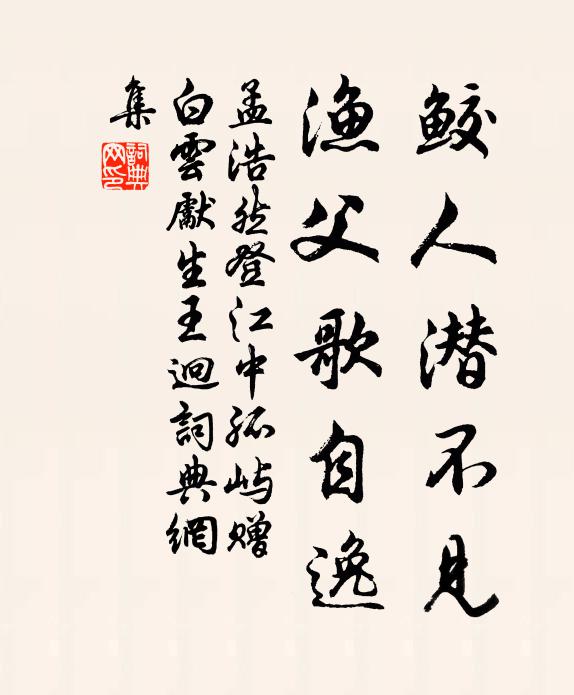 鲛人潜不见
渔父歌自逸
孟浩然登江中孤屿赠
白雲獻生王迥詞典網
集
詞典網印